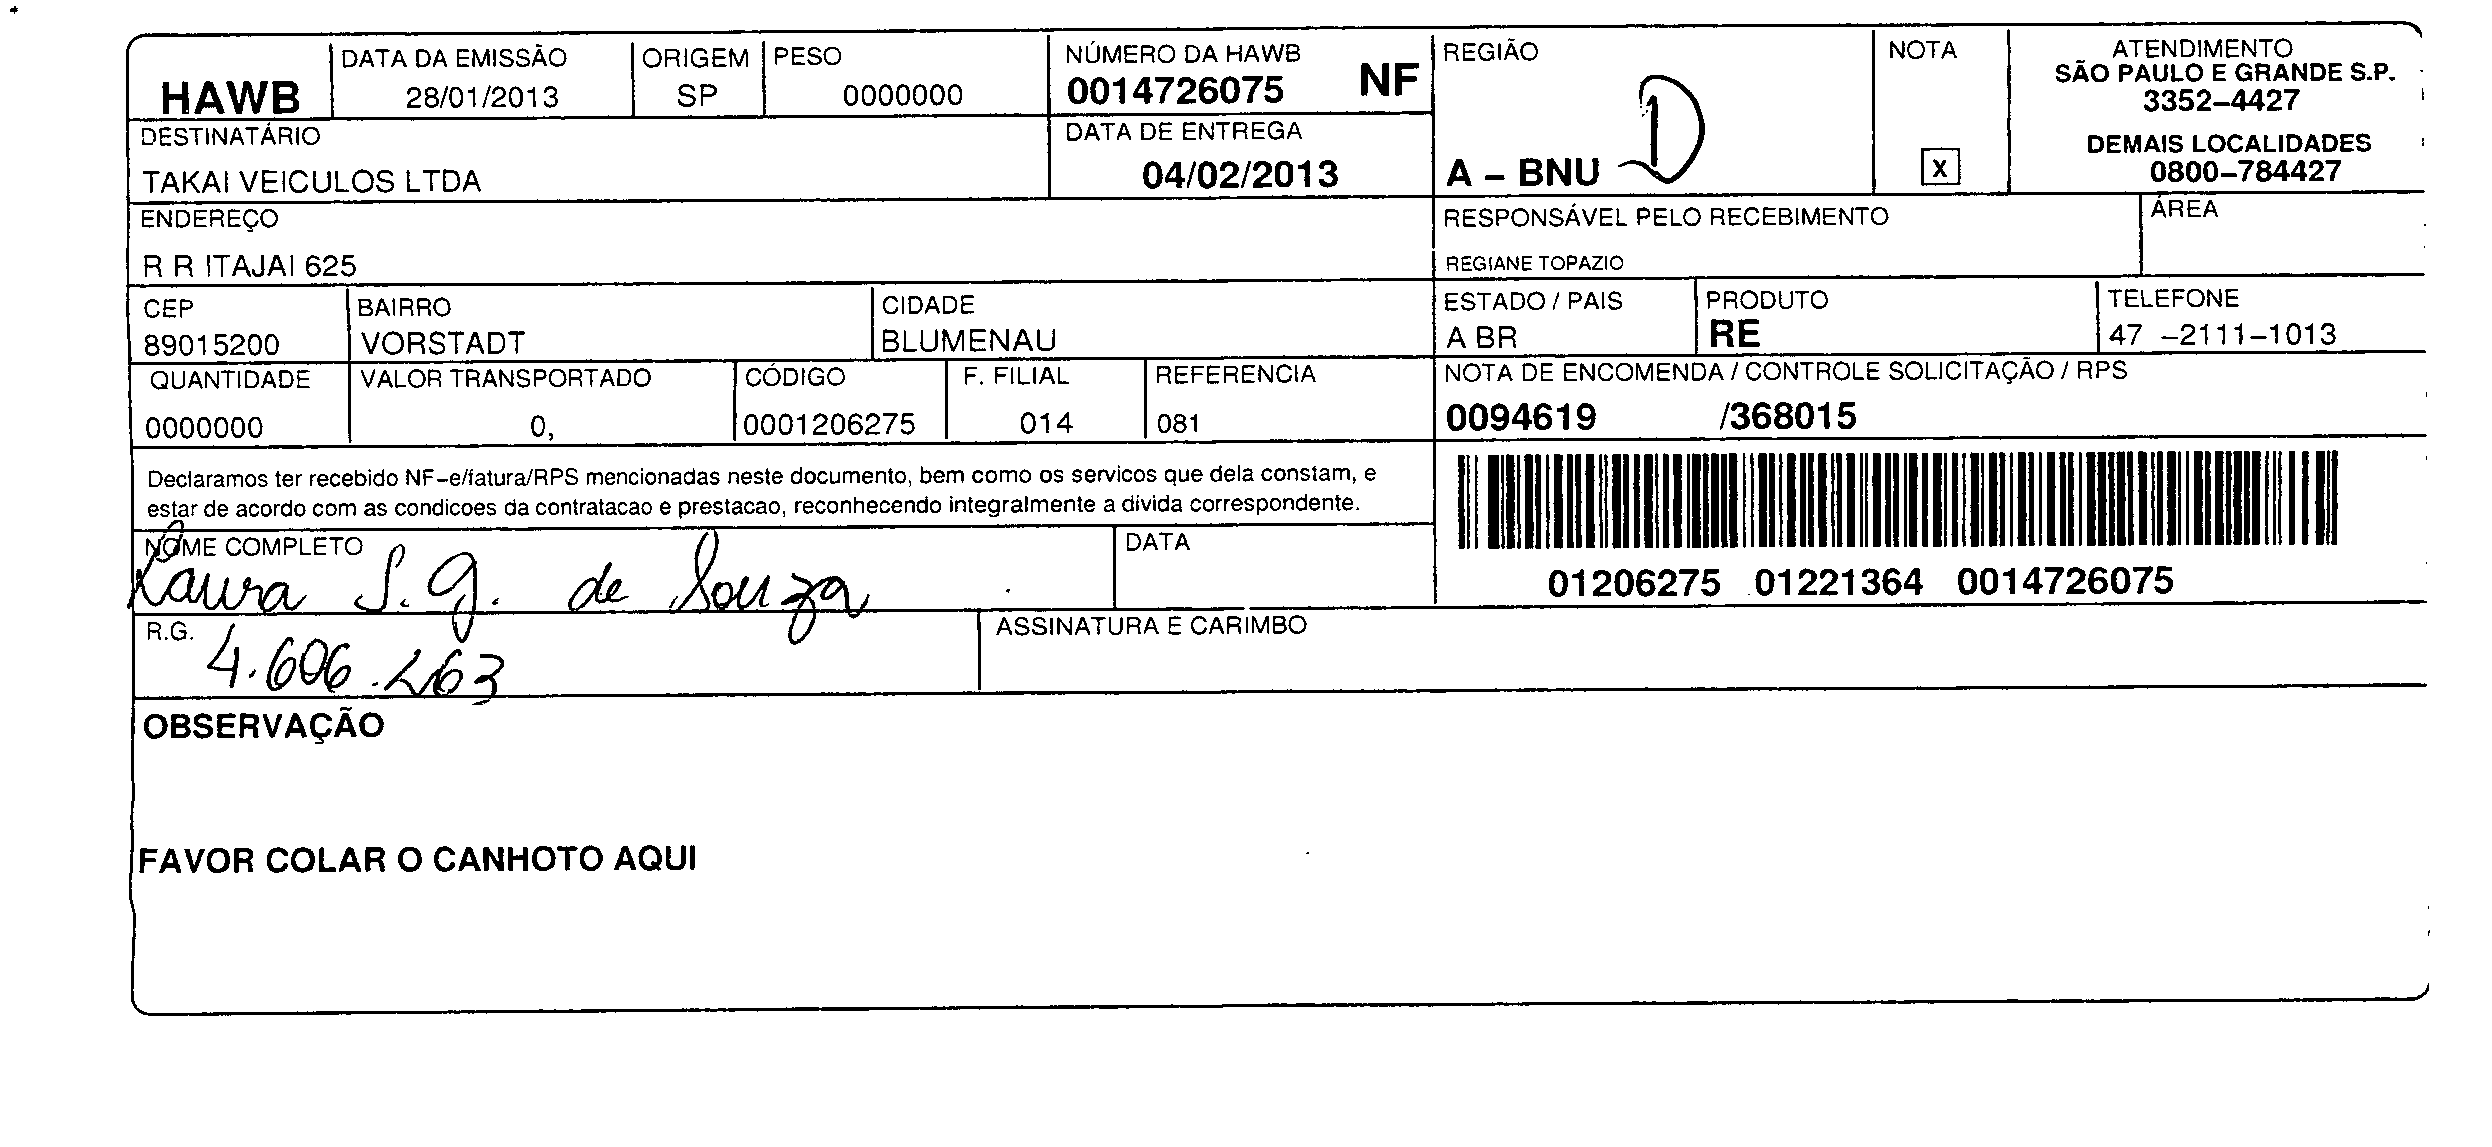 HAWB
DATA DA EMISSÃO
28/01/2013
ORIGEM
SP
PESO
0000000
NÚMERO DA HAWB
0014726075 NF
REGIÃO
A – BNU D
NOTA
X
ATENDIMENTO
SÃO PAULO E GRANDE S.P.
3352–4427
DEMAIS LOCALIDADES
0800–784427
DESTINATÁRIO
TAKAI VEICULOS LTDA
DATA DE ENTREGA
04/02/2013
ENDEREÇO
R R ITAJAI 625
RESPONSÁVEL PELO RECEBIMENTO
REGIANE TOPAZIO
ÁREA
CEP
89015200
BAIRRO
VORSTADT
CIDADE
BLUMENAU
ESTADO / PAIS
A BR
PRODUTO
RE
TELEFONE
47 –2111–1013
QUANTIDADE
0000000
VALOR TRANSPORTADO
0,
CÓDIGO
0001206275
F. FILIAL
014
REFERENCIA
081
NOTA DE ENCOMENDA / CONTROLE SOLICITAÇÃO / RPS
0094619 /368015
Declaramos ter recebido NF–e/fatura/RPS mencionadas neste documento, bem como os servicos que dela constam, e
estar de acordo com as condicoes da contratacao e prestacao, reconhecendo integralmente a divida correspondente.
01206275 01221364 0014726075
NOME COMPLETO
Laura S. G. de Souza
DATA
R.G.
4.606.263
ASSINATURA E CARIMBO
OBSERVAÇÃO
FAVOR COLAR O CANHOTO AQUI